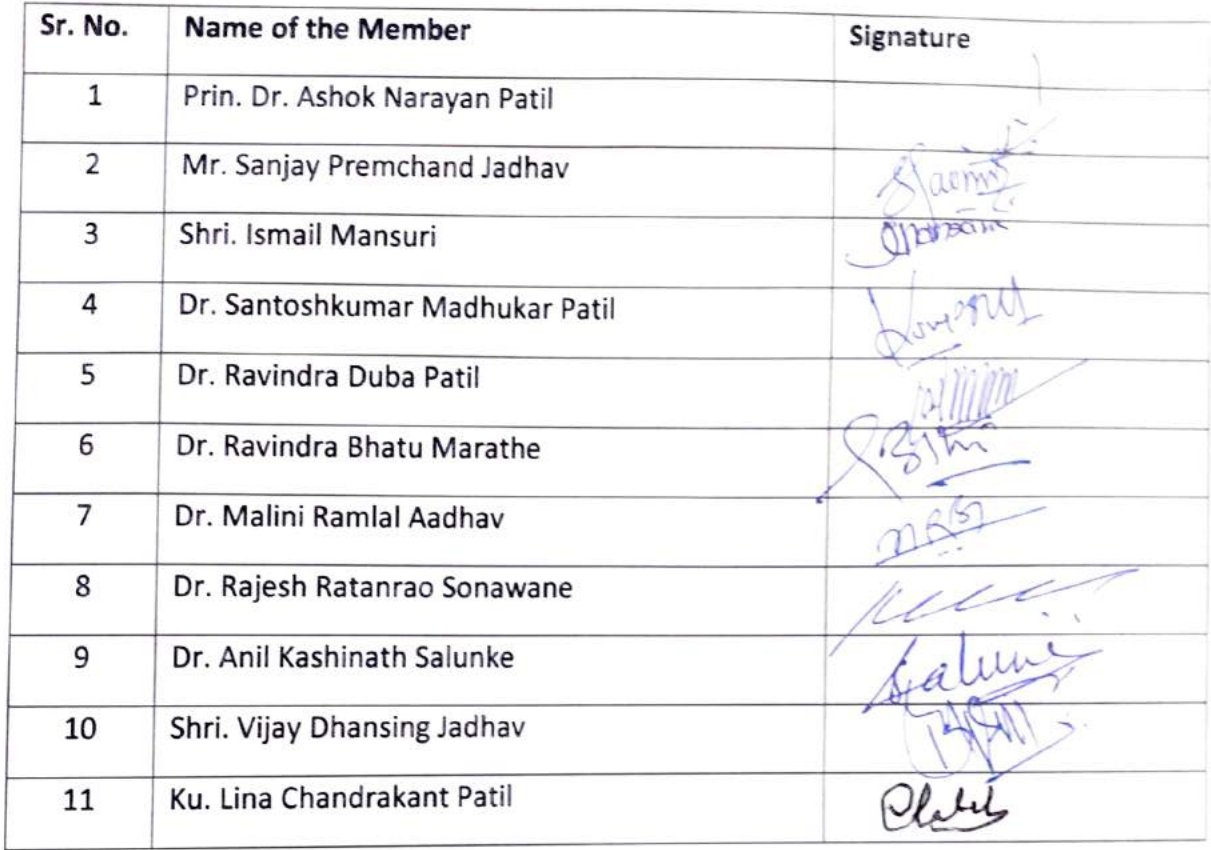 Sr. No. Name of the Member Signature
1 Prin. Dr. Ashok Narayan Patil
2 Mr. Sanjay Premchand Jadhav
3 Shri. Ismail Mansuri
4 Dr. Santoshkumar Madhukar Patil
5 Dr. Ravindra Duba Patil
6 Dr. Ravindra Bhatu Marathe
7 Dr. Malini Ramlal Aadhav
8 Dr. Rajesh Ratanrao Sonawane
9 Dr. Anil Kashinath Salunke
10 Shri. Vijay Dhansing Jadhav
11 Ku. Lina Chandrakant Patil